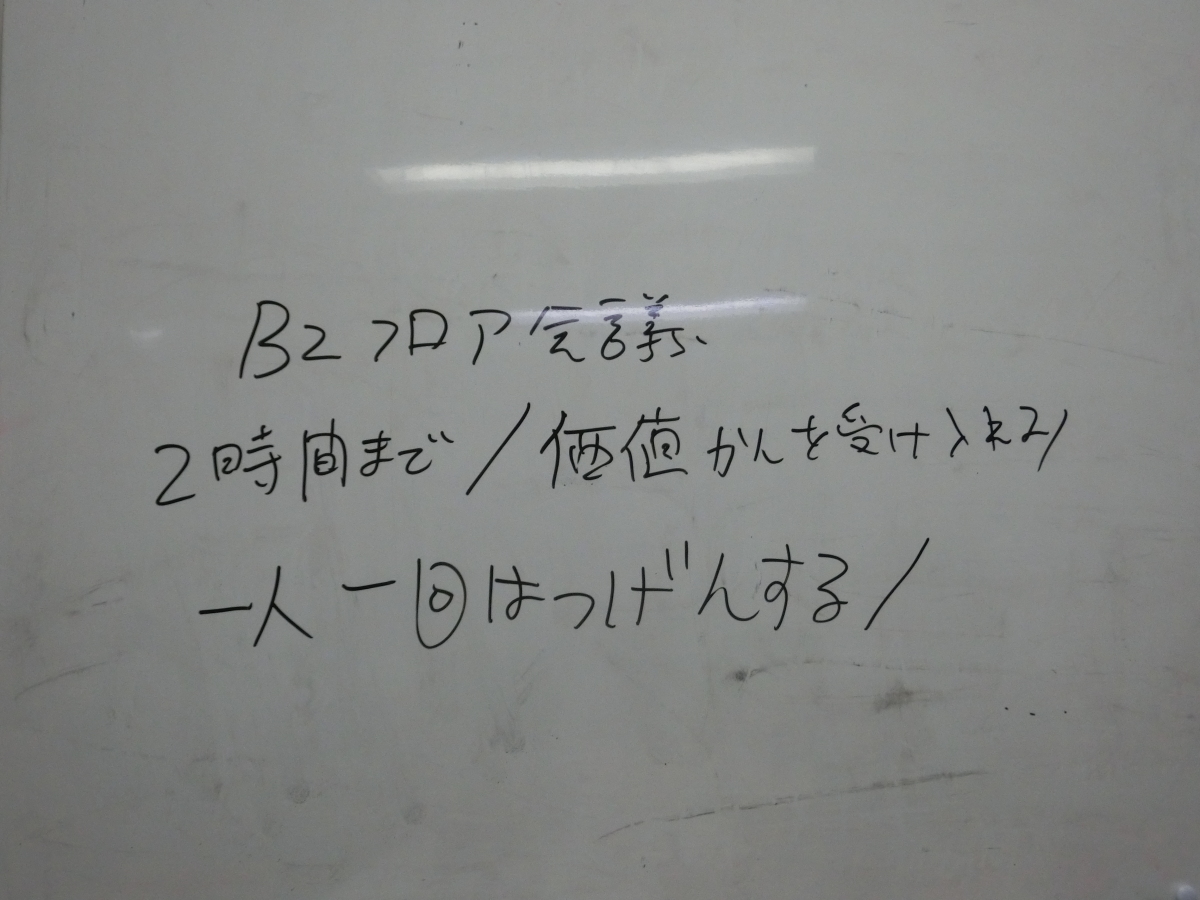 B2フロア会議
2時間まで/価値かんを受け入れる/
一人一回はつげんする/